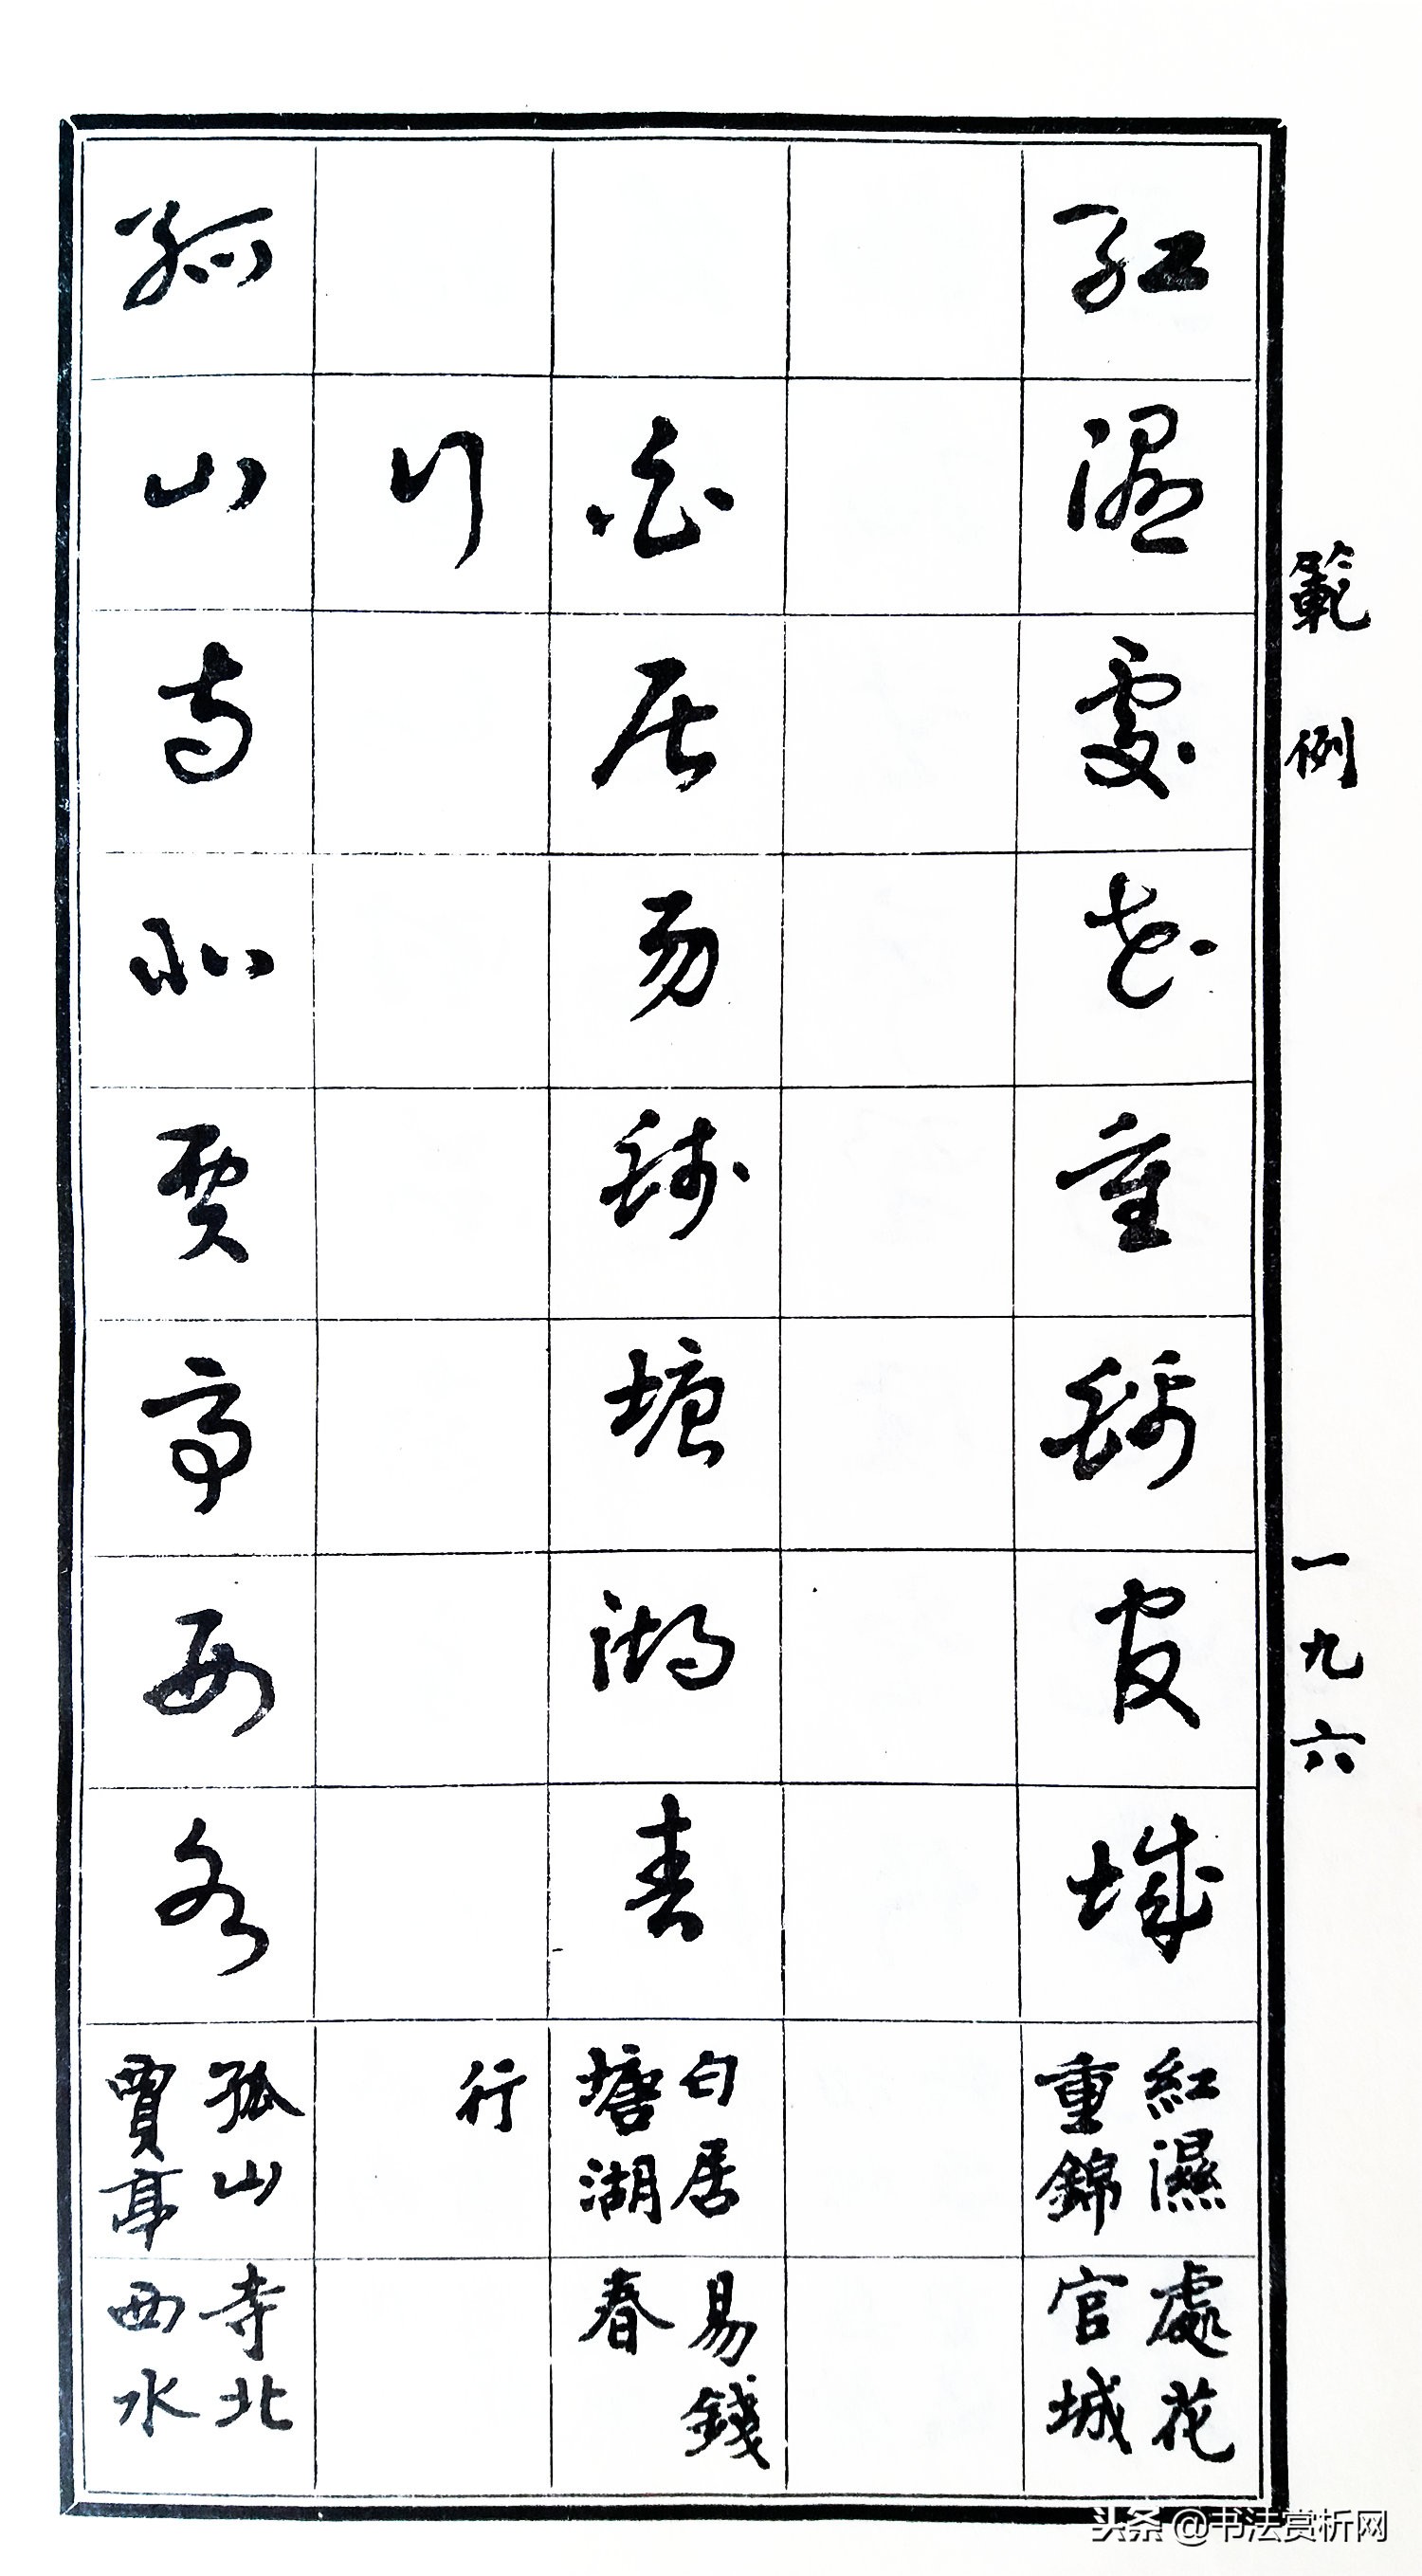 範例
一九六
紅濕處花重錦官城
紅濕處花
重錦官城
白居易錢塘湖春
白居易錢
塘湖春
行
行
孤山寺北賈亭西水
孤山寺北
賈亭西水
头条 @书法赏析网